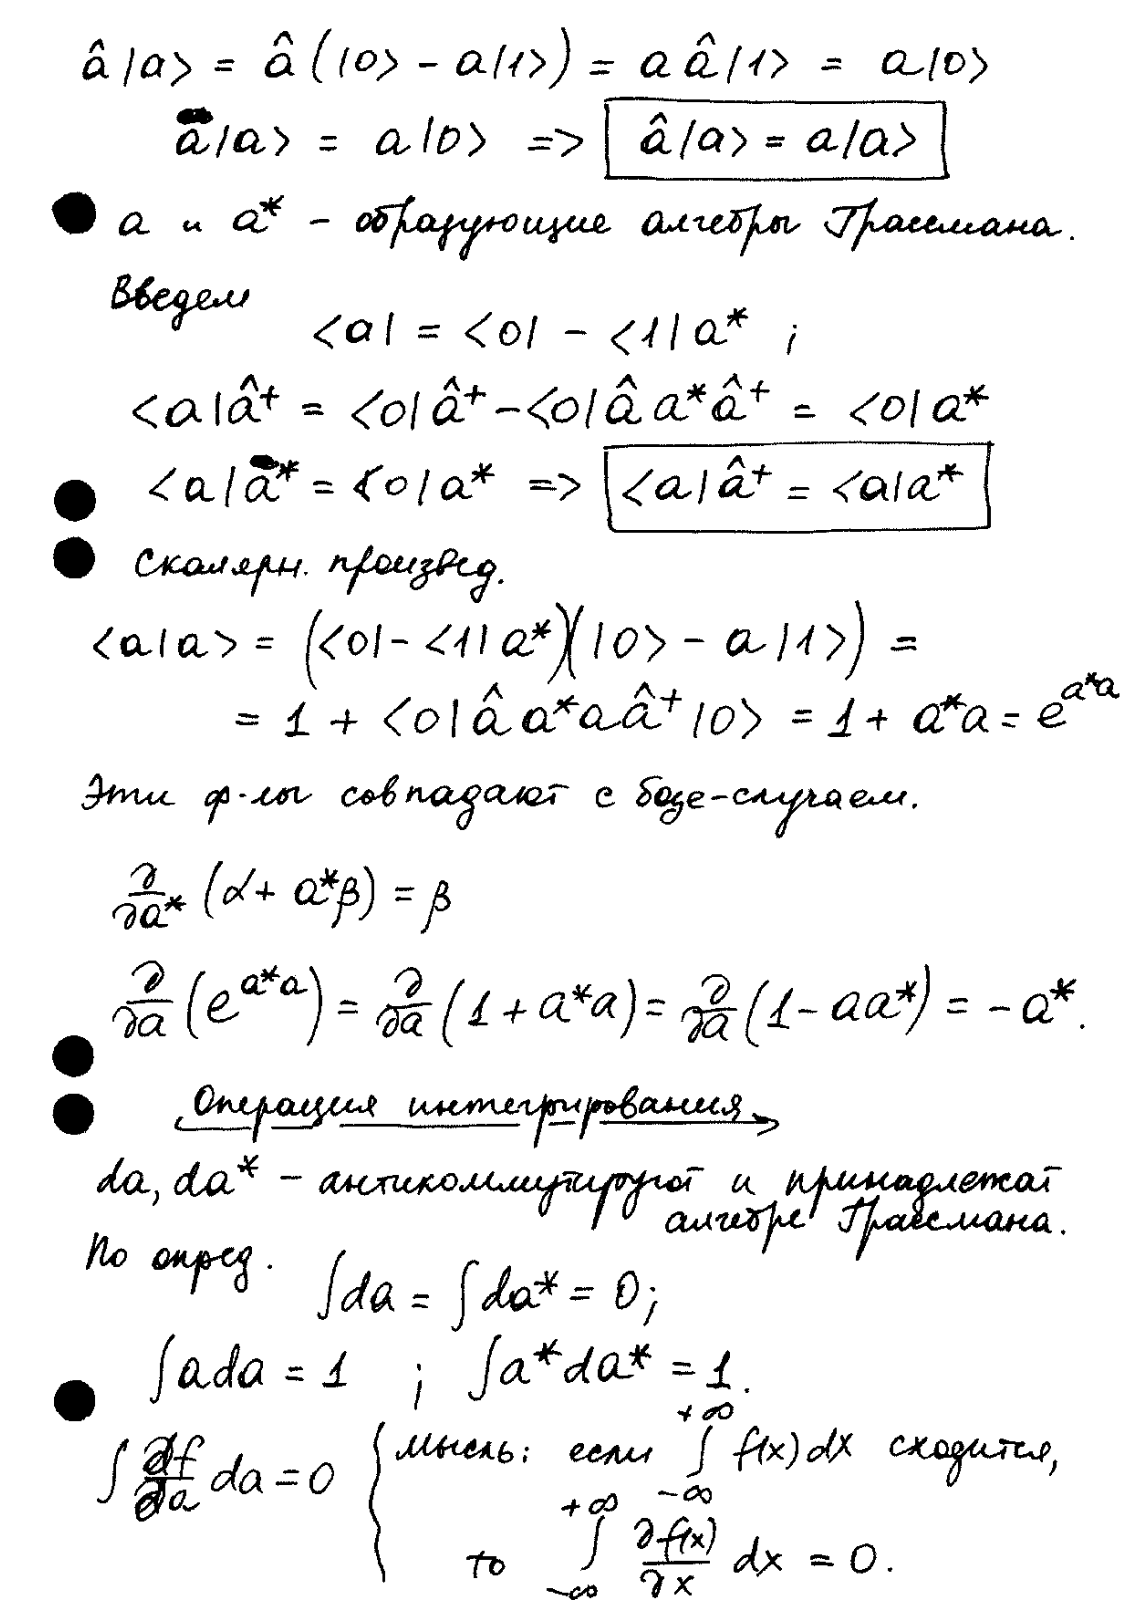 â|a> = â(|0> - a|1>) = a â|1> = a|0>
a|a> = a|0> => â|a> = a|a>
a и a* - образующие алгебры Грассмана.
Введем
<a| = <0| - <1|a* ;
<a|â⁺ = <0|â⁺ - <0|â a* â⁺ = <0|a*
<a|a* = <0|a* => <a|â⁺ = <a|a*
Скалярн. произвед.
<a|a> = (<0| - <1|a*)(|0> - a|1>) =
= 1 + <0|â a*a â⁺|0> = 1 + a*a = e^{a*a}
Эти ф-лы совпадают с бозе-случаем.
∂/∂a* (α + a*β) = β
∂/∂a (e^{a*a}) = ∂/∂a (1 + a*a) = ∂/∂a (1 - aa*) = -a*.
Операция интегрирования
da, da* - антикоммутируют и принадлежат
алгебре Грассмана.
По опред.
∫da = ∫da* = 0;
∫a da = 1 ; ∫a* da* = 1.
∫ ∂f/∂a da = 0 { мысль: если ∫_{-∞}^{+∞} f(x) dx сходится,
то ∫_{-∞}^{+∞} ∂f(x)/∂x dx = 0.